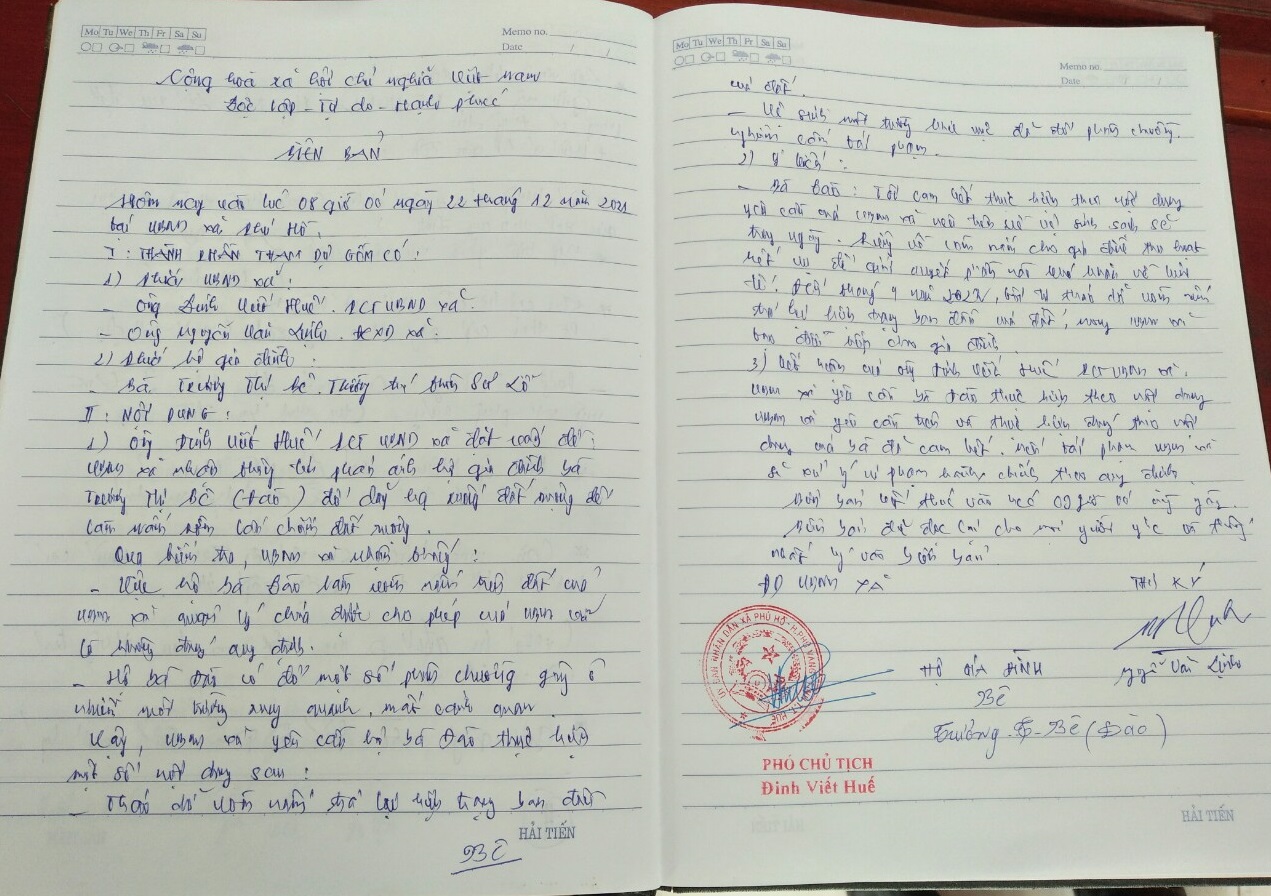 Mo Tu We Th Fr Sa Su
Memo no.
Date / /
Cộng hoà xã hội chủ nghĩa Việt Nam
Độc lập - Tự do - Hạnh phúc
BIÊN BẢN
Hôm nay vào lúc 08 giờ 00 ngày 22 tháng 12 năm 2021
tại UBND xã Phú Hồ.
I: THÀNH PHẦN THAM DỰ GỒM CÓ:
1) Phía UBND xã:
- Ông Đinh Viết Huế. PCT UBND xã
- Ông Nguyễn Văn Linh. ĐCXD xã.
2) Phía hộ gia đình:
- Bà Trương Thị Bê. Thường trú thôn Sư Lỗ
II: NỘI DUNG:
1) Ông Đinh Viết Huế PCT UBND xã đặt vấn đề:
UBND xã nhận thông tin phản ánh hộ gia đình bà
Trương Thị Bê (Đào) đổ xuống đất ruộng để
làm lấn chiếm đất ruộng.
Qua kiểm tra, UBND xã nhận thấy:
- Việc hộ bà Đào làm trên đất của
UBND xã quản lý chưa được cho phép của UBND xã
là không đúng quy định.
- Hộ bà Đào có đổ một số phân chuồng gây ô
nhiễm môi trường xung quanh, mất cảnh quan.
Vậy, UBND xã yêu cầu hộ bà Đào thực hiện
một số nội dung sau:
- Tháo dỡ trả lại hiện trạng ban đầu
Bê
HẢI TIẾN
Mo Tu We Th Fr Sa Su
Memo no.
Date / /
của đất.
- Vệ sinh môi trường khu vực đã đổ phân chuồng.
nghiêm cấm tái phạm.
2) Ý kiến:
- Bà Đào: Tôi cam kết thực hiện theo nội dung
yêu cầu của UBND xã nêu trên về vệ sinh sạch sẽ
trong ngày. Riêng về cho gia đình thu hoạch
hết vụ để giải quyết khó khăn về kinh
tế. Đến tháng 4 năm 2022, tôi tự tháo dỡ
trả lại hiện trạng ban đầu của đất, mong UBND xã
tạo điều kiện cho gia đình.
3) Kết luận của ông Đinh Viết Huế PCT UBND xã.
UBND xã yêu cầu bà Đào thực hiện theo nội dung
UBND xã yêu cầu trên và thực hiện đúng theo nội
dung mà bà đã cam kết. Nếu tái phạm UBND xã
sẽ xử lý vi phạm hành chính theo quy định.
Biên bản kết thúc vào lúc 09 giờ 00 cùng ngày.
Biên bản đã đọc lại cho mọi người nghe và thống
nhất ký vào biên bản
ĐD UBND XÃ
THƯ KÝ
ỦY BAN NHÂN DÂN XÃ PHÚ HỒ - H.PHÚ VANG
HỘ GIA ĐÌNH
Nguyễn Văn Linh
Bê
Trương T- Bê (Đào)
PHÓ CHỦ TỊCH
Đinh Viết Huế
HẢI TIẾN